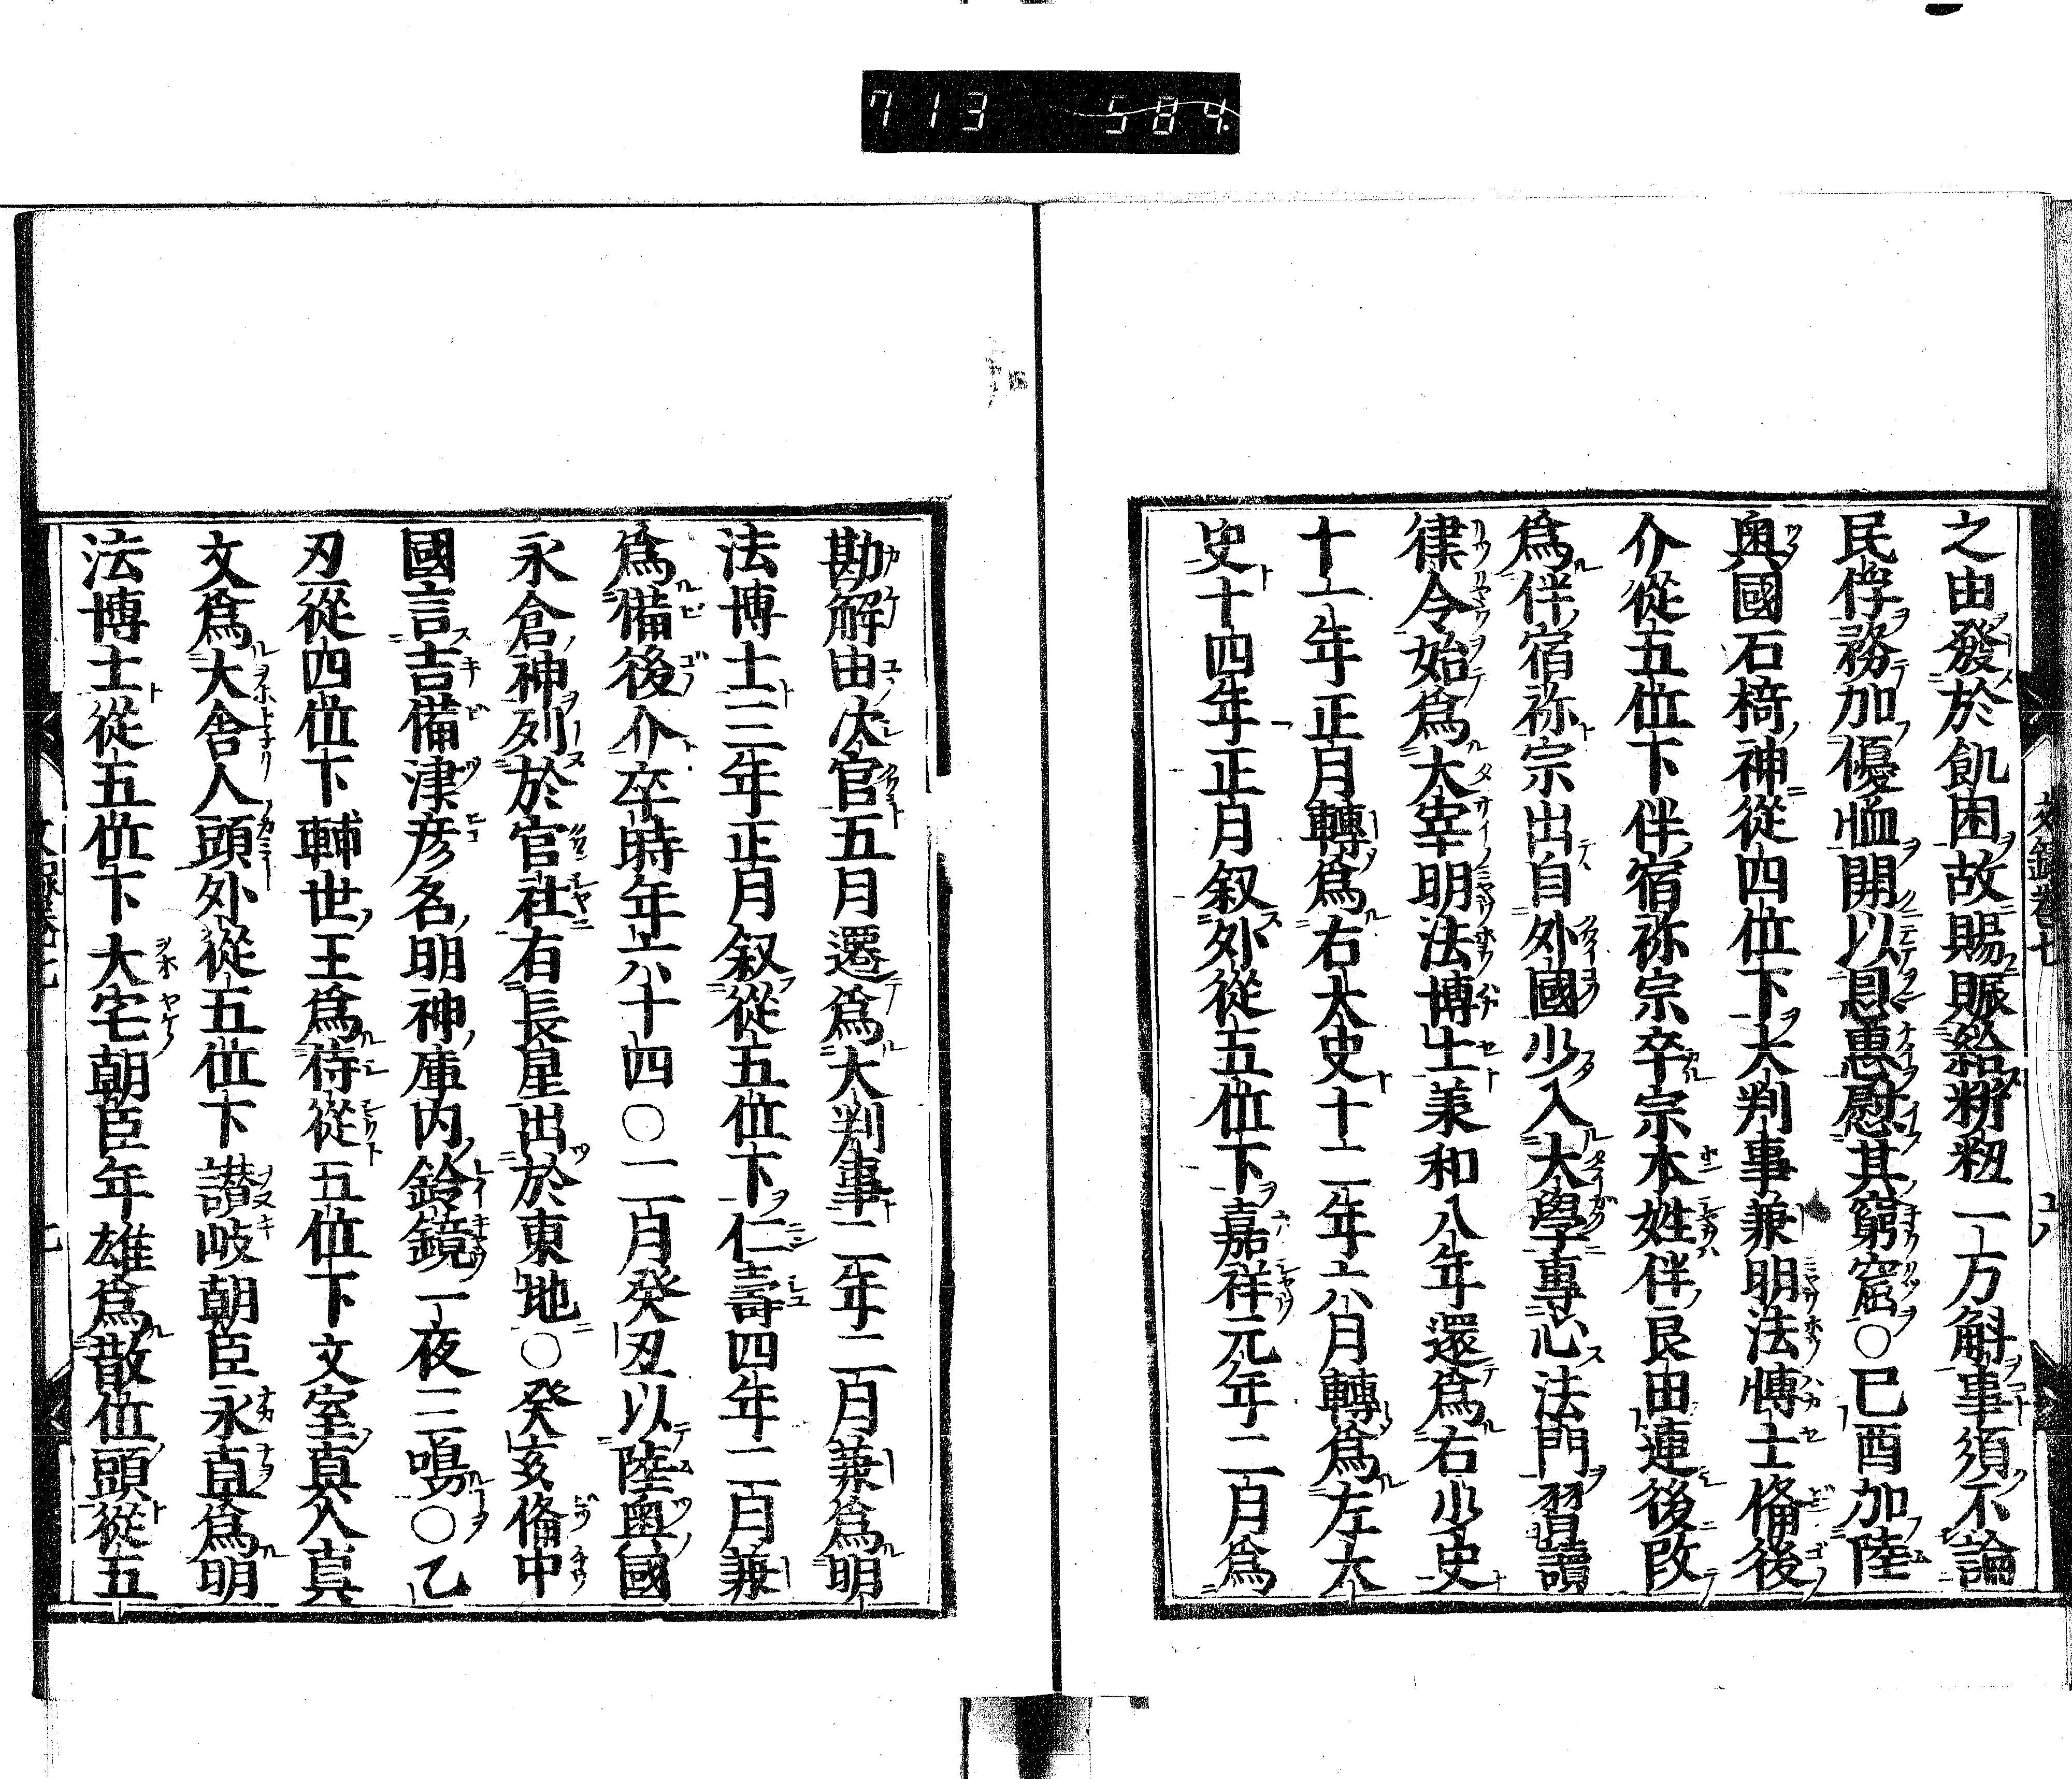 713 584
文録卷七
之由發於飢困故賜賑給籾粈一万斛事須不論
民俘務加優恤開以恩惠慰其窮窟○己酉加陸
奥國石椅神從四位下大判事兼明法博士俻後
介從五位下伴宿祢宗卒宗本姓伴良田連後改
爲伴宿祢宗出自外國少入大學專心法門習讀
律令始爲大宰明法博士羕和八年還爲右少史
十一年正月轉爲右大史十二年六月轉爲左大
史十四年正月叙外從五位下嘉祥元年二月爲
勘解由次官五月遷爲大判事二年二月兼爲明
法博士三年正月叙從五位下仁壽四年二月兼
爲備後介卒時年六十四○二月癸丑以陸奥國
永倉神列於官社有長星出於東地○癸亥俻中
國言吉備津彦名明神庫内鈴鏡一夜三鳴○乙
刃從四位下輔世王爲侍從五位下文室真人真
文爲大舎人頭外從五位下讃岐朝臣永直爲明
法博士從五位下大宅朝臣年雄爲散位頭從五